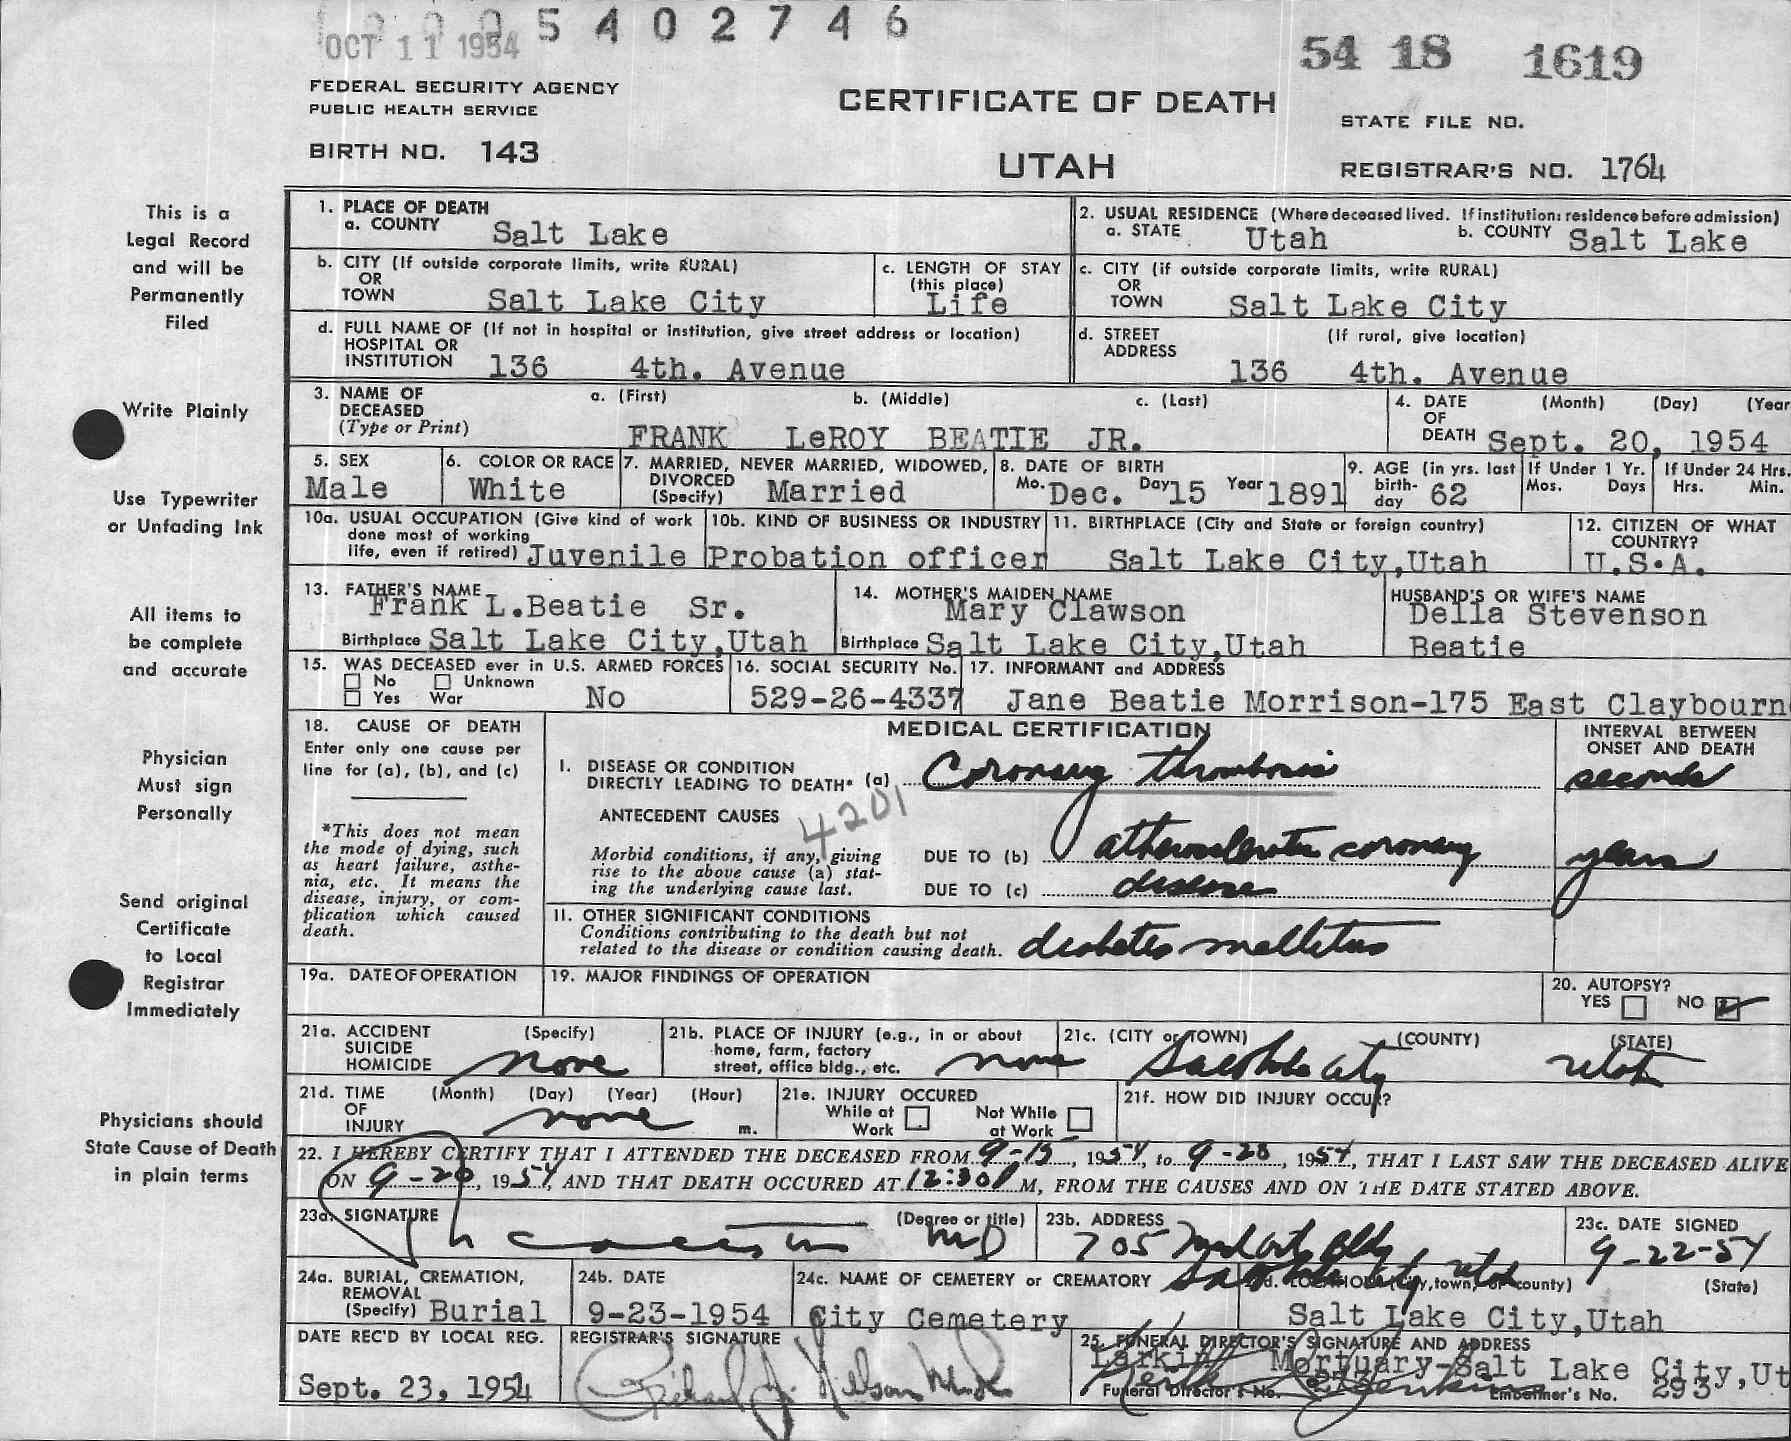 OCT 11 1954 5402746
54 18 1619
FEDERAL SECURITY AGENCY
PUBLIC HEALTH SERVICE
CERTIFICATE OF DEATH
STATE FILE NO.
BIRTH NO. 143
UTAH
REGISTRAR'S NO. 1764
This is a
Legal Record
and will be
Permanently
Filed
Write Plainly
Use Typewriter
or Unfading Ink
All items to
be complete
and accurate
Physician
Must sign
Personally
Send original
Certificate
to Local
Registrar
Immediately
Physicians should
State Cause of Death
in plain terms
1. PLACE OF DEATH
a. COUNTY Salt Lake
2. USUAL RESIDENCE (Where deceased lived. If institution: residence before admission)
a. STATE Utah b. COUNTY Salt Lake
b. CITY (If outside corporate limits, write RURAL)
OR
TOWN Salt Lake City
c. LENGTH OF STAY
(this place)
Life
c. CITY (if outside corporate limits, write RURAL)
OR
TOWN Salt Lake City
d. FULL NAME OF (If not in hospital or institution, give street address or location)
HOSPITAL OR
INSTITUTION 136 4th. Avenue
d. STREET (If rural, give location)
ADDRESS
136 4th. Avenue
3. NAME OF a. (First) b. (Middle) c. (Last)
DECEASED
(Type or Print) FRANK LeROY BEATIE JR.
4. DATE (Month) (Day) (Year
OF
DEATH Sept. 20, 1954
5. SEX
Male
6. COLOR OR RACE
White
7. MARRIED, NEVER MARRIED, WIDOWED,
DIVORCED
(Specify) Married
8. DATE OF BIRTH
Mo. Dec. Day 15 Year 1891
9. AGE (in yrs. last
birth-
day 62
If Under 1 Yr.
Mos. Days
If Under 24 Hrs.
Hrs. Min.
10a. USUAL OCCUPATION (Give kind of work
done most of working
life, even if retired) Juvenile Probation officer
10b. KIND OF BUSINESS OR INDUSTRY
11. BIRTHPLACE (City and State or foreign country)
Salt Lake City,Utah
12. CITIZEN OF WHAT
COUNTRY?
U.S.A.
13. FATHER'S NAME
Frank L.Beatie Sr.
Birthplace Salt Lake City,Utah
14. MOTHER'S MAIDEN NAME
Mary Clawson
Birthplace Salt Lake City,Utah
HUSBAND'S OR WIFE'S NAME
Della Stevenson
Beatie
15. WAS DECEASED ever in U.S. ARMED FORCES
No Unknown
Yes War No
16. SOCIAL SECURITY No.
529-26-4337
17. INFORMANT and ADDRESS
Jane Beatie Morrison-175 East Claybourn
18. CAUSE OF DEATH
Enter only one cause per
line for (a), (b), and (c)
*This does not mean
the mode of dying, such
as heart failure, asthe-
nia, etc. It means the
disease, injury, or com-
plication which caused
death.
MEDICAL CERTIFICATION
INTERVAL BETWEEN
ONSET AND DEATH
I. DISEASE OR CONDITION
DIRECTLY LEADING TO DEATH* (a) Coronary thrombosis seconds
4201
ANTECEDENT CAUSES
Morbid conditions, if any, giving
rise to the above cause (a) stat-
ing the underlying cause last.
DUE TO (b) atherosclerotic coronary years
DUE TO (c) disease
II. OTHER SIGNIFICANT CONDITIONS
Conditions contributing to the death but not
related to the disease or condition causing death. diabetes mellitus
19a. DATE OF OPERATION
19. MAJOR FINDINGS OF OPERATION
20. AUTOPSY?
YES NO
21a. ACCIDENT (Specify)
SUICIDE
HOMICIDE none
21b. PLACE OF INJURY (e.g., in or about
home, farm, factory
street, office bldg., etc. none
21c. (CITY or TOWN) (COUNTY) (STATE)
Salt Lake City Utah
21d. TIME (Month) (Day) (Year) (Hour)
OF
INJURY none m.
21e. INJURY OCCURED
While at Work
Not While at Work
21f. HOW DID INJURY OCCUR?
22. I HEREBY CERTIFY THAT I ATTENDED THE DECEASED FROM 9-15, 1954, to 9-20, 1954, THAT I LAST SAW THE DECEASED ALIVE
ON 9-20, 1954, AND THAT DEATH OCCURED AT 12:30 M, FROM THE CAUSES AND ON THE DATE STATED ABOVE.
23a. SIGNATURE (Degree or title)
MD
23b. ADDRESS
705 Med Arts Bldg
Salt Lake City Utah
23c. DATE SIGNED
9-22-54
24a. BURIAL, CREMATION,
REMOVAL
(Specify) Burial
24b. DATE
9-23-1954
24c. NAME OF CEMETERY or CREMATORY
City Cemetery
24d. LOCATION (City, town, or county) (State)
Salt Lake City,Utah
DATE REC'D BY LOCAL REG.
Sept. 23, 1954
REGISTRAR'S SIGNATURE
25. FUNERAL DIRECTOR'S SIGNATURE AND ADDRESS
Larkin Mortuary-Salt Lake City,Ut
Funeral Director's No. Embalmer's No. 293